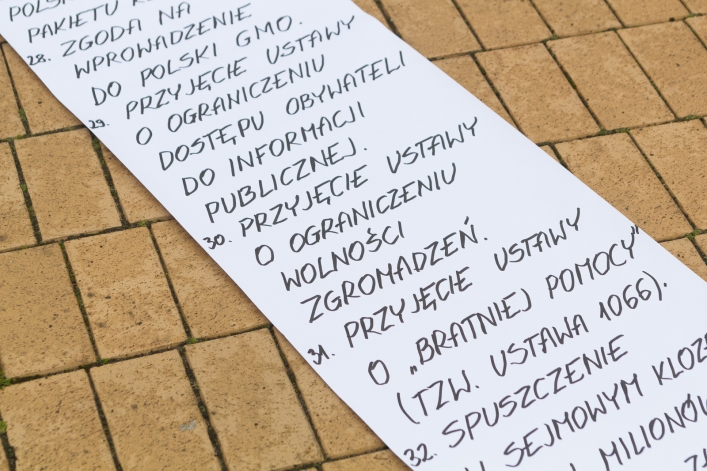 PAKIETU
28. ZGODA NA
WPROWADZENIE
DO POLSKI GMO.
29. PRZYJĘCIE USTAWY
O OGRANICZENIU
DOSTĘPU OBYWATELI
DO INFORMACJI
PUBLICZNEJ.
30. PRZYJĘCIE USTAWY
O OGRANICZENIU
WOLNOŚCI
ZGROMADZEŃ.
31. PRZYJĘCIE USTAWY
O „BRATNIEJ POMOCY”
(TZW. USTAWA 1066).
32. SPUSZCZENIE
SEJMOWYM
MILIONÓW